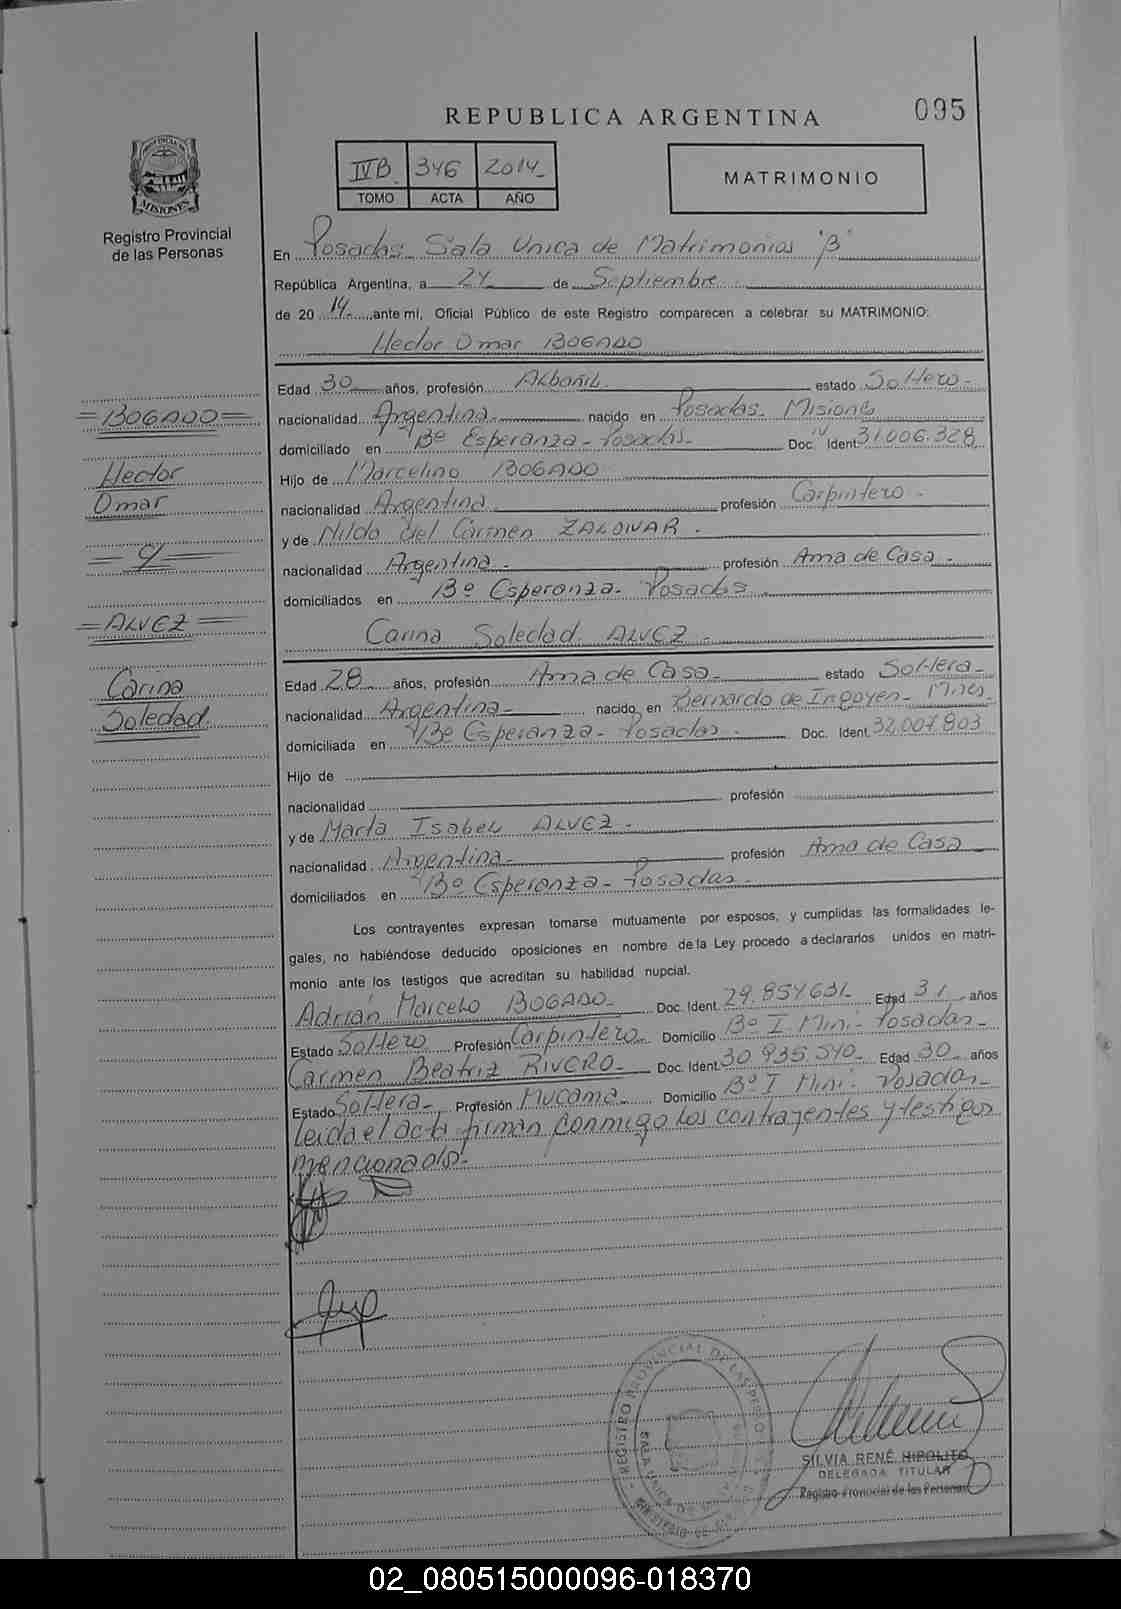 095
REPUBLICA ARGENTINA
IVB 346 2014
TOMO ACTA AÑO
MATRIMONIO
PROVINCIA DE
MISIONES
Registro Provincial
de las Personas
En Posadas Sala Unica de Matrimonios "B"
República Argentina, a 24 de Septiembre
de 2014 ante mí, Oficial Público de este Registro comparecen a celebrar su MATRIMONIO:
Hector Omar BOGADO
Edad 30 años, profesión Albañil estado Soltero
=BOGADO=
nacionalidad Argentina nacido en Posadas Misiones
domiciliado en Bº Esperanza - Posadas Doc. Ident 31.006.328
Hector
Hijo de Marcelino BOGADO
Omar
nacionalidad Argentina profesión Carpintero
y de Nilda del Carmen ZALDIVAR
= y =
nacionalidad Argentina profesión Ama de Casa
domiciliados en Bº Esperanza - Posadas
=ALVEZ=
Carina Soledad ALVEZ
Carina
Edad 28 años, profesión Ama de Casa estado Soltera
Soledad
nacionalidad Argentina nacido en Bernardo de Irigoyen - Mnes
domiciliada en Bº Esperanza - Posadas Doc. Ident. 32.007.803
Hijo de
nacionalidad profesión
y de Marta Isabel ALVEZ
nacionalidad Argentina profesión Ama de Casa
domiciliados en Bº Esperanza - Posadas
Los contrayentes expresan tomarse mutuamente por esposos, y cumplidas las formalidades le-
gales, no habiéndose deducido oposiciones en nombre de la Ley procedo a declararlos unidos en matri-
monio ante los testigos que acreditan su habilidad nupcial.
Adrián Marcelo BOGADO Doc. Ident. 29.854.631 Edad 31 años
Estado Soltero Profesión Carpintero Domicilio Bº I. Mini - Posadas
Carmen Beatriz RIVERO Doc. Ident. 30.935.540 Edad 30 años
Estado Soltera Profesión Mucama Domicilio Bº I Mini - Posadas
Leida el acta firman conmigo los contrayentes y testigos
mencionados.
REGISTRO PROVINCIAL DE LAS PERSONAS
SALA UNICA DE
SILVIA RENÉ HIPOLITO
DELEGADA TITULAR
Registro Provincial de las Personas
02_080515000096-018370